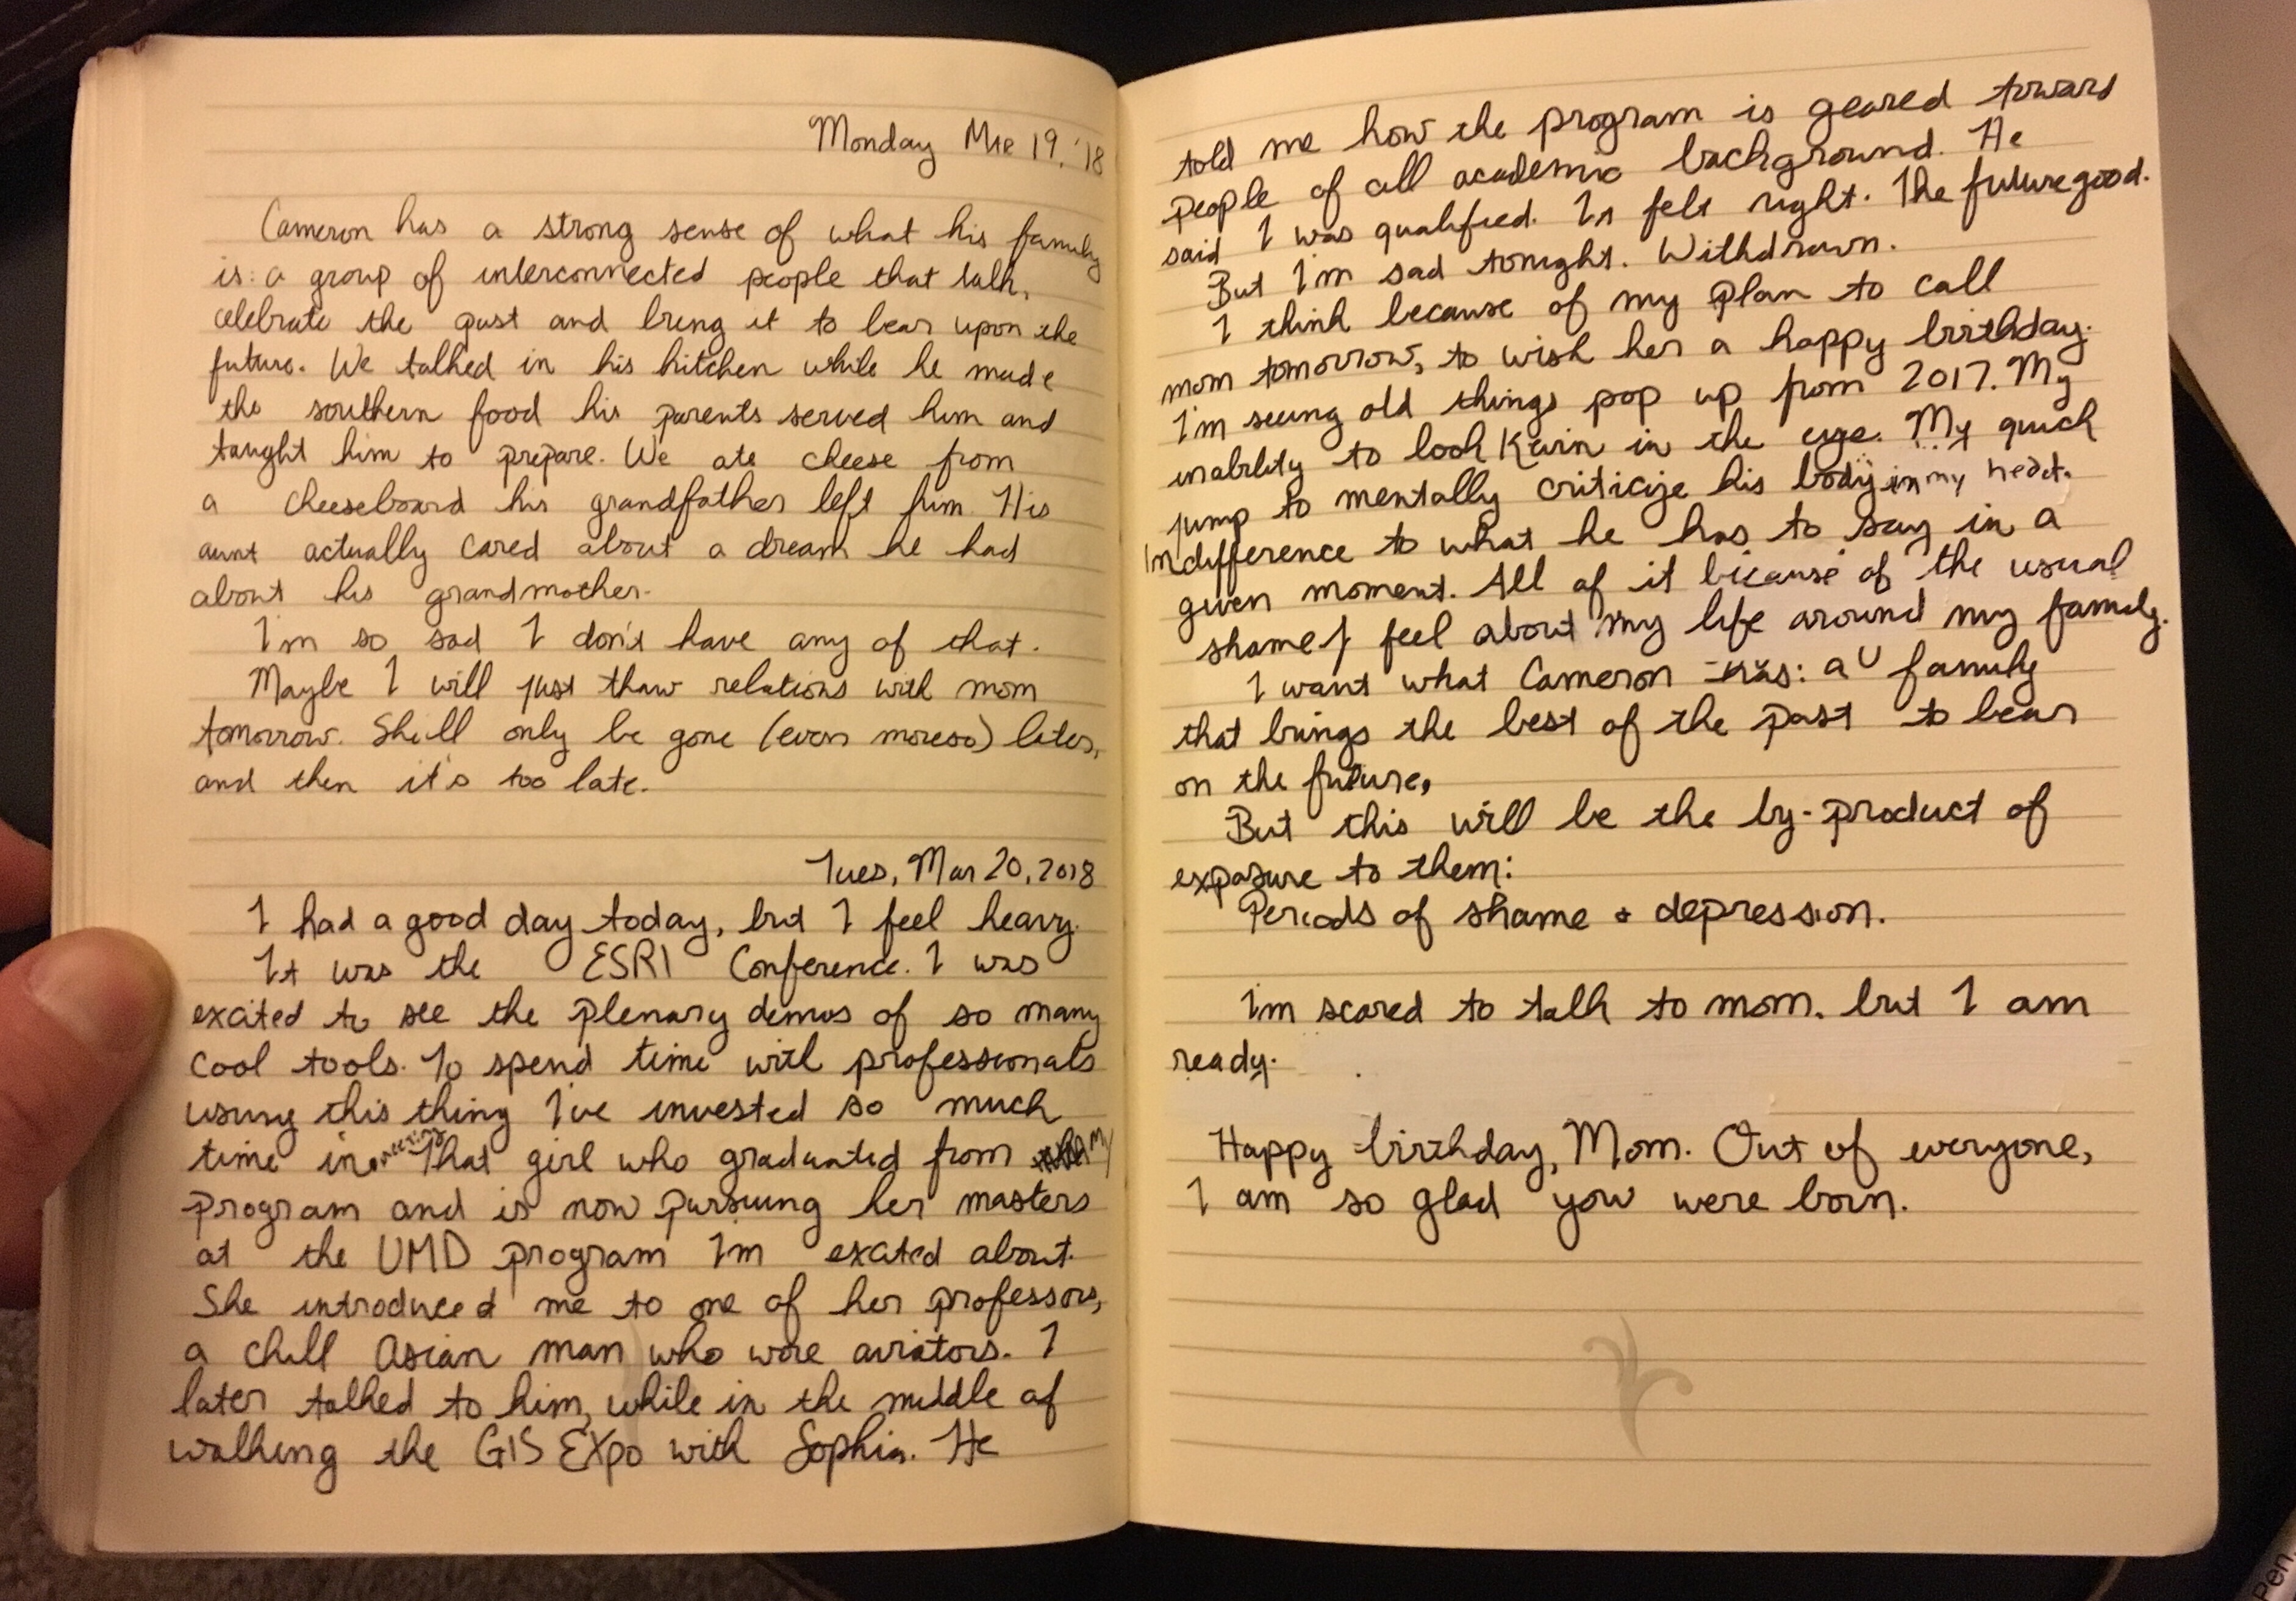 Monday Mar 19, '18
Cameron has a strong sense of what his family
is: a group of interconnected people that talk,
celebrate the past and bring it to bear upon the
future. We talked in his kitchen while he made
the southern food his parents served him and
taught him to prepare. We ate cheese from
a cheeseboard his grandfather left him. His
aunt actually cared about a dream he had
about his grandmother.
I'm so sad I don't have any of that.
Maybe I will just thaw relations with mom
tomorrow. She'll only be gone (even moreso) later,
and then it's too late.
Tues, Mar 20, 2018
I had a good day today, but I feel heavy.
It was the ESRI Conference. I was
excited to see the plenary demos of so many
cool tools. To spend time with professionals
using this thing I've invested so much
time in. meeting That girl who graduated from my
program and is now pursuing her masters
at the UMD program I'm excited about.
She introduced me to one of her professors,
a chill Asian man who wore aviators. I
later talked to him, while in the middle of
walking the GIS Expo with Sophia. He
told me how the program is geared towars
people of all academic background. He
said I was qualified. It felt right. The future good.
But I'm sad tonight. Withdrawn.
I think because of my plan to call
mom tomorrow, to wish her a happy birthday.
I'm seeing old things pop up from 2017. My
inability to look Kevin in the eye. My quick
jump to mentally criticize his body in my head.
Indifference to what he has to say in a
given moment. All of it because of the usual
shame I feel about my life around my family.
I want what Cameron has: a family
that brings the best of the past to bear
on the future.
But this will be the by-product of
exposure to them:
Periods of shame + depression.
I'm scared to talk to mom. but I am
ready.
Happy birthday, Mom. Out of everyone,
I am so glad you were born.
Pen